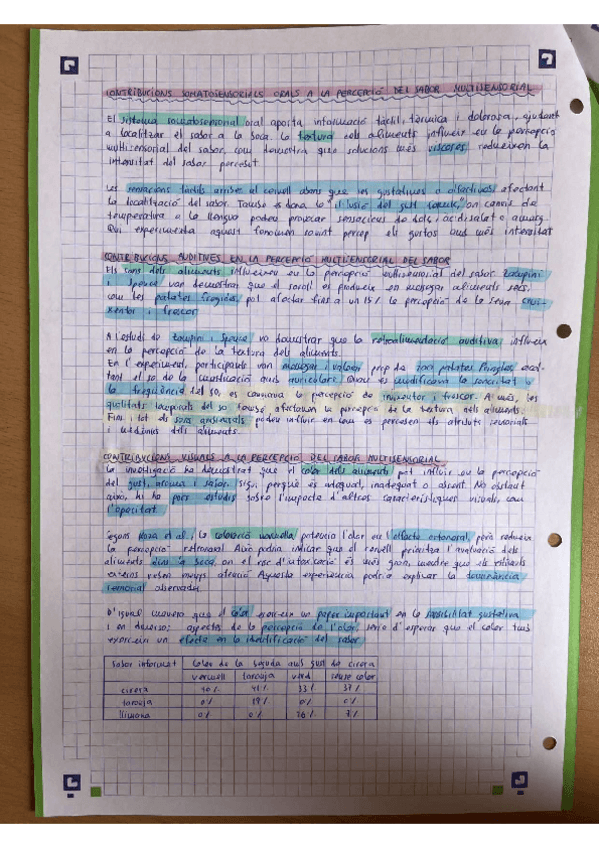 CONTRIBUCIONS SOMATOSENSORIALS ORALS A LA PERCEPCIÓ DEL SABOR MULTISENSORIAL
El sistema somatosensorial oral aporta informació tàctil, tèrmica i dolorosa, ajudant
a localitzar el sabor a la boca. La textura dels aliments influeix en la percepció
multisensorial del sabor, com demostra que solucions més viscoses redueixen la
intensitat del sabor percebut.
Les sensacions tàctils arriben al cervell abans que les gustatives o olfactives, afectant
la localització del sabor. També es dona la "il·lusió del gust tèrmic", on canvis de
temperatura a la llengua poden provocar sensacions de dolç, àcid, salat o amarg.
Qui experimenta aquest fenomen sovint percep els gustos amb més intensitat
CONTRIBUCIONS AUDITIVES EN LA PERCEPCIÓ MULTISENSORIAL DEL SABOR
Els sons dels aliments influeixen en la percepció multisensorial del sabor. Zampini
i Spence van demostrar que el soroll es produeix en menjar aliments secs,
com les patates fregides, pot afectar fins a un 15% la percepció de la seva
i frescor
A l'estudi de Zampini i Spence va demostrar que la retroalimentació auditiva influeix
en la percepció de la textura dels aliments.
En l'experiment, participants van menjar i valorar prop de 200 patates Pringles,
so de la masticació amb auriculars. Quan es modificava la sonoritat o
la freqüència del so, es canviava la percepció de i frescor. A més, les
qualitats temporals del so també afectaven la percepció de la textura dels aliments
Fins i tot els sons ambientals poden influir en com es perceben els atributs sensorials
i hedònics dels aliments.
CONTRIBUCIONS VISUALS A LA PERCEPCIÓ DEL SABOR MULTISENSORIAL
La investigació ha demostrat que el color dels aliments pot influir en la percepció
del gust, aroma i sabor, sigui perquè és adequat, inadequat o absent. No obstant
això, hi ha pocs estudis sobre l'impacte d'altres característiques visuals, com
l'opacitat.
Segons Koza et al., la coloració vermella potencia l'olor en l'efecte ortonasal, però redueix
la percepció retronasal. Això podria indicar que el cervell prioritza l'avaluació dels
aliments dins la boca, on el risc d'intoxicació és més gran, mentre que els
externs reben menys atenció. Aquesta experiència podria explicar la dominància
observada.
D'igual manera que el color exerceix un paper important en la sensibilitat gustativa
i en diversos aspectes de la percepció de l'olor, seria d'esperar que el color també
exerceixi un efecte en la identificació del sabor
Sabor informat Color de la beguda amb gust de cirera
vermell taronja verd sense color
cirera 70% 41% 33% 37%
taronja 0% 19% 0% 0%
llimona 0% 0% 26% 7%